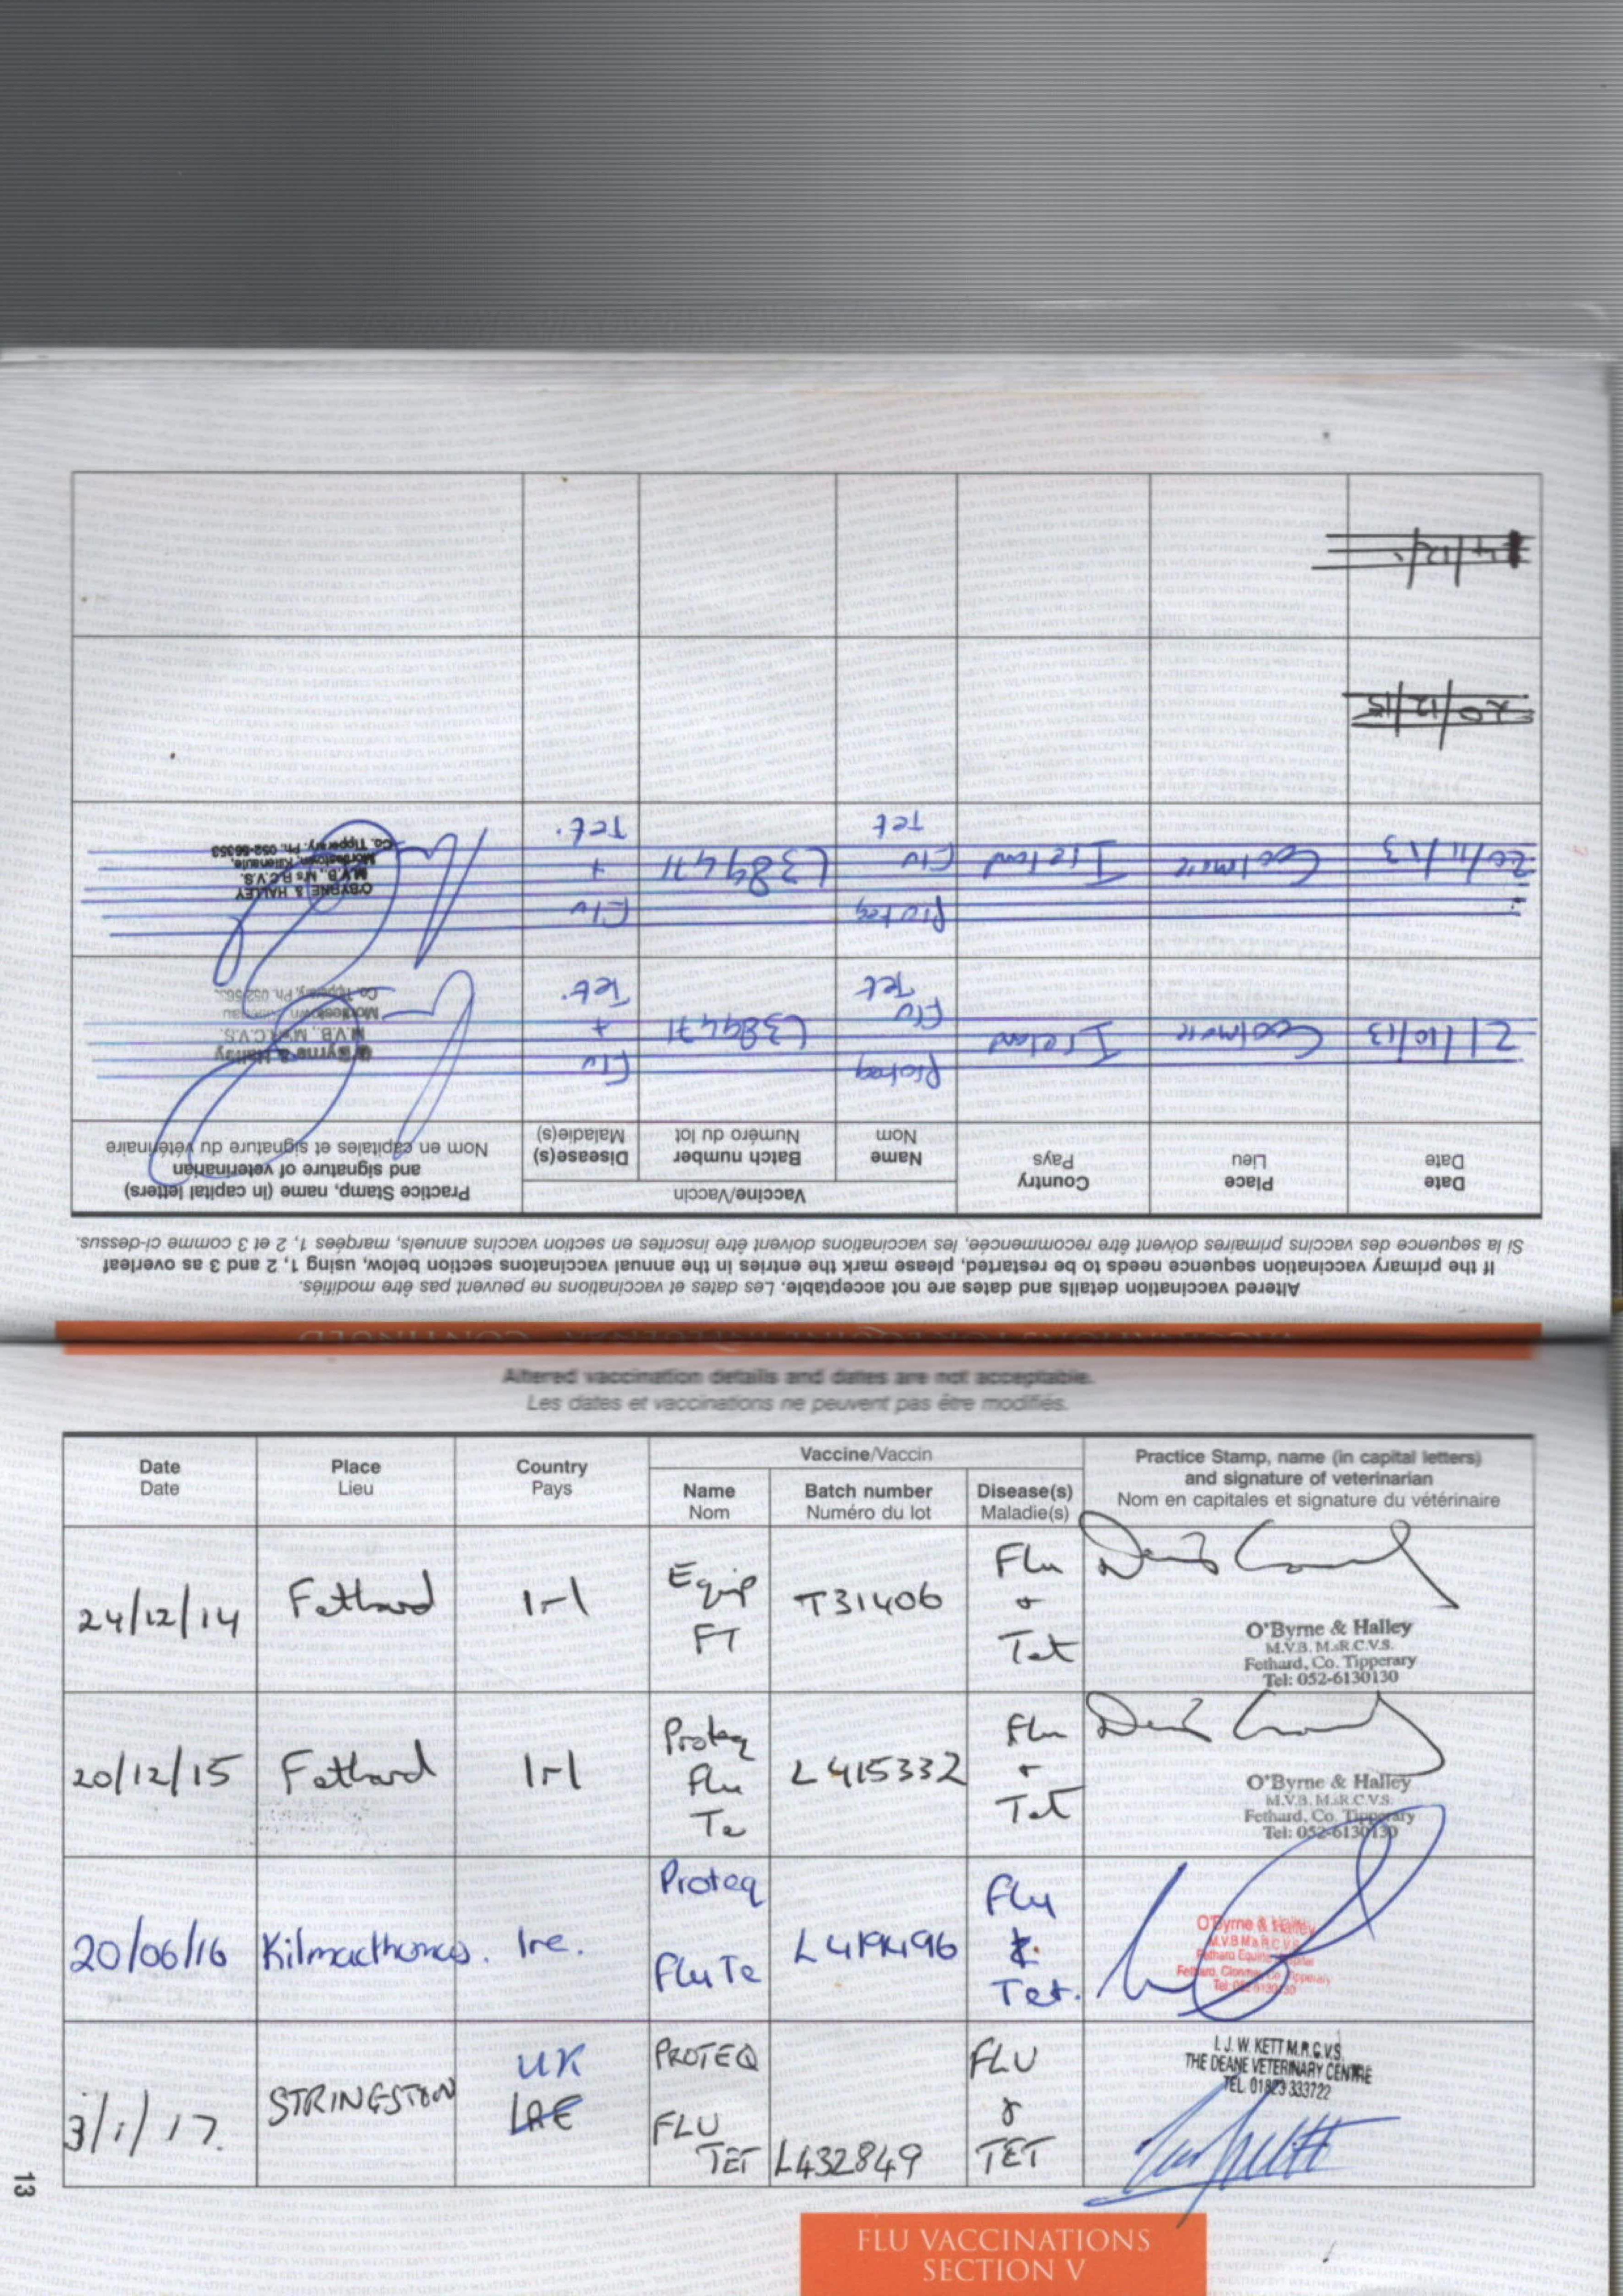 VACCINATIONS FOR EQUINE INFLUENZA - CONTINUED
Altered vaccination details and dates are not acceptable. Les dates et vaccinations ne peuvent pas être modifiés.
If the primary vaccination sequence needs to be restarted, please mark the entries in the annual vaccinatons section below, using 1, 2 and 3 as overleaf
Si la sequence des vaccins primaires doivent être recommencée, les vaccinations doivent être inscrites en section vaccins annuels, marqées 1, 2 et 3 comme ci-dessus.
Date
Date
Place
Lieu
Country
Pays
Vaccine/Vaccin
Name
Nom
Batch number
Numéro du lot
Disease(s)
Maladie(s)
Practice Stamp, name (in capital letters)
and signature of veterinarian
Nom en capitales et signature du vétérinaire
21/10/13
Coolmore
Ireland
Proteq
Flu
Tet
L389471
Flu
+
Tet.
O'Byrne & Halley
M.V.B., M's R.C.V.S.
Co. Tipperary, Ph. 052-56
20/11/13
Coolmore
Ireland
Proteq
Flu
Tet
L389471
Flu
+
Tet.
O'BYRNE & HALLEY
M.V.B., M's R.C.V.S.
Mordestown, Killenaule,
Co. Tipperary. Ph. 052-56353
20/12/15
Altered vaccination details and dates are not acceptable.
Les dates et vaccinations ne peuvent pas être modifiés.
Date
Date
Place
Lieu
Country
Pays
Vaccine/Vaccin
Name
Nom
Batch number
Numéro du lot
Disease(s)
Maladie(s)
Practice Stamp, name (in capital letters)
and signature of veterinarian
Nom en capitales et signature du vétérinaire
24/12/14
Fethard
Irl
Equip
FT
T31406
Flu
+
Tet
O'Byrne & Halley
M.V.B. M.sR.C.V.S.
Fethard, Co. Tipperary
Tel: 052-6130130
20/12/15
Fethard
Irl
Proteq
Flu
Te
L415332
Flu
+
Tet
O'Byrne & Halley
M.V.B. M.sR.C.V.S.
Fethard, Co. Tipperary
Tel: 052-6130130
20/06/16
Kilmacthomas.
Ire.
Proteq
Flu Te
Flu
&
Tet.
O'Byrne & Halley
M.V.B M's R.C.V.S
Fethard Equine Hospital
Fethard, Clonmel, Co. Tipperary
Tel: 052 6130130
3/1/17.
STRINGSTON
UK
PROTEQ
FLU
TET
L432849
FLU
&
TET
I. J. W. KETT M.R.C.V.S.
THE DEANE VETERINARY CENTRE
TEL. 01823 333722
13
FLU VACCINATIONS
SECTION V